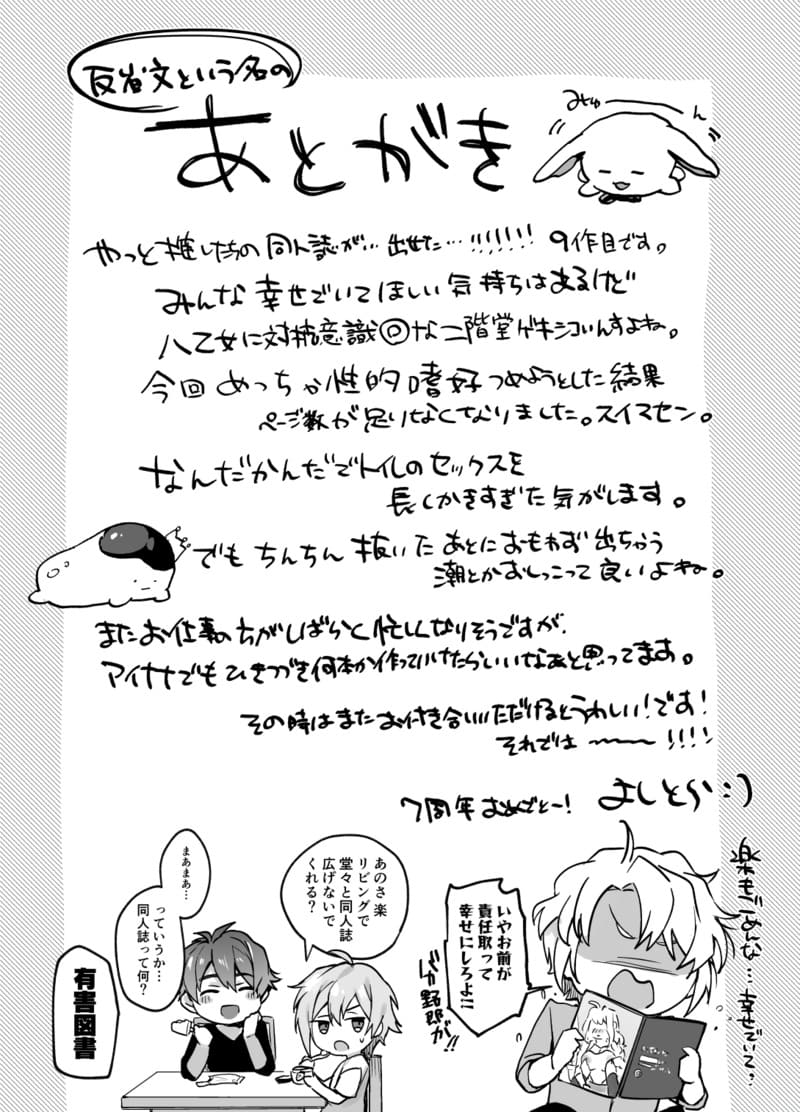 反省文という名の
あとがき
みゅーーーん
やっと推したちの同人誌が…出せた…!!!!!! 9作目です。
みんな幸せでいてほしい気持ちはあるけど
八乙女に対抗意識◎な二階堂ゲキシコいんすよね。
今回めっちゃ性的嗜好つめようとした結果
ページ数が足りなくなりました。スイマセン。
なんだかんだでトイレのセックスを
長くかきすぎた気がします。
でもちんちん抜いたあとにおもわず出ちゃう
潮とかおしっこって良いよね。
またお仕事の方がしばらく忙しくなりそうですが、
アイナナでもひきつづき何本か作っていけたらいいなあと思ってます。
その時はまたお付き合いいただけるとうれしい!です!
それでは〜〜〜!!!!
7周年おめでとー! よしとら:)
いやお前が
責任取って
幸せにしろよ!!
バカ野郎が!!
楽もごめんな…幸せでいて?
あのさ楽
リビングで
堂々と同人誌
広げないで
くれる?
まぁまぁ…
っていうか…
同人誌って何?
有害図書